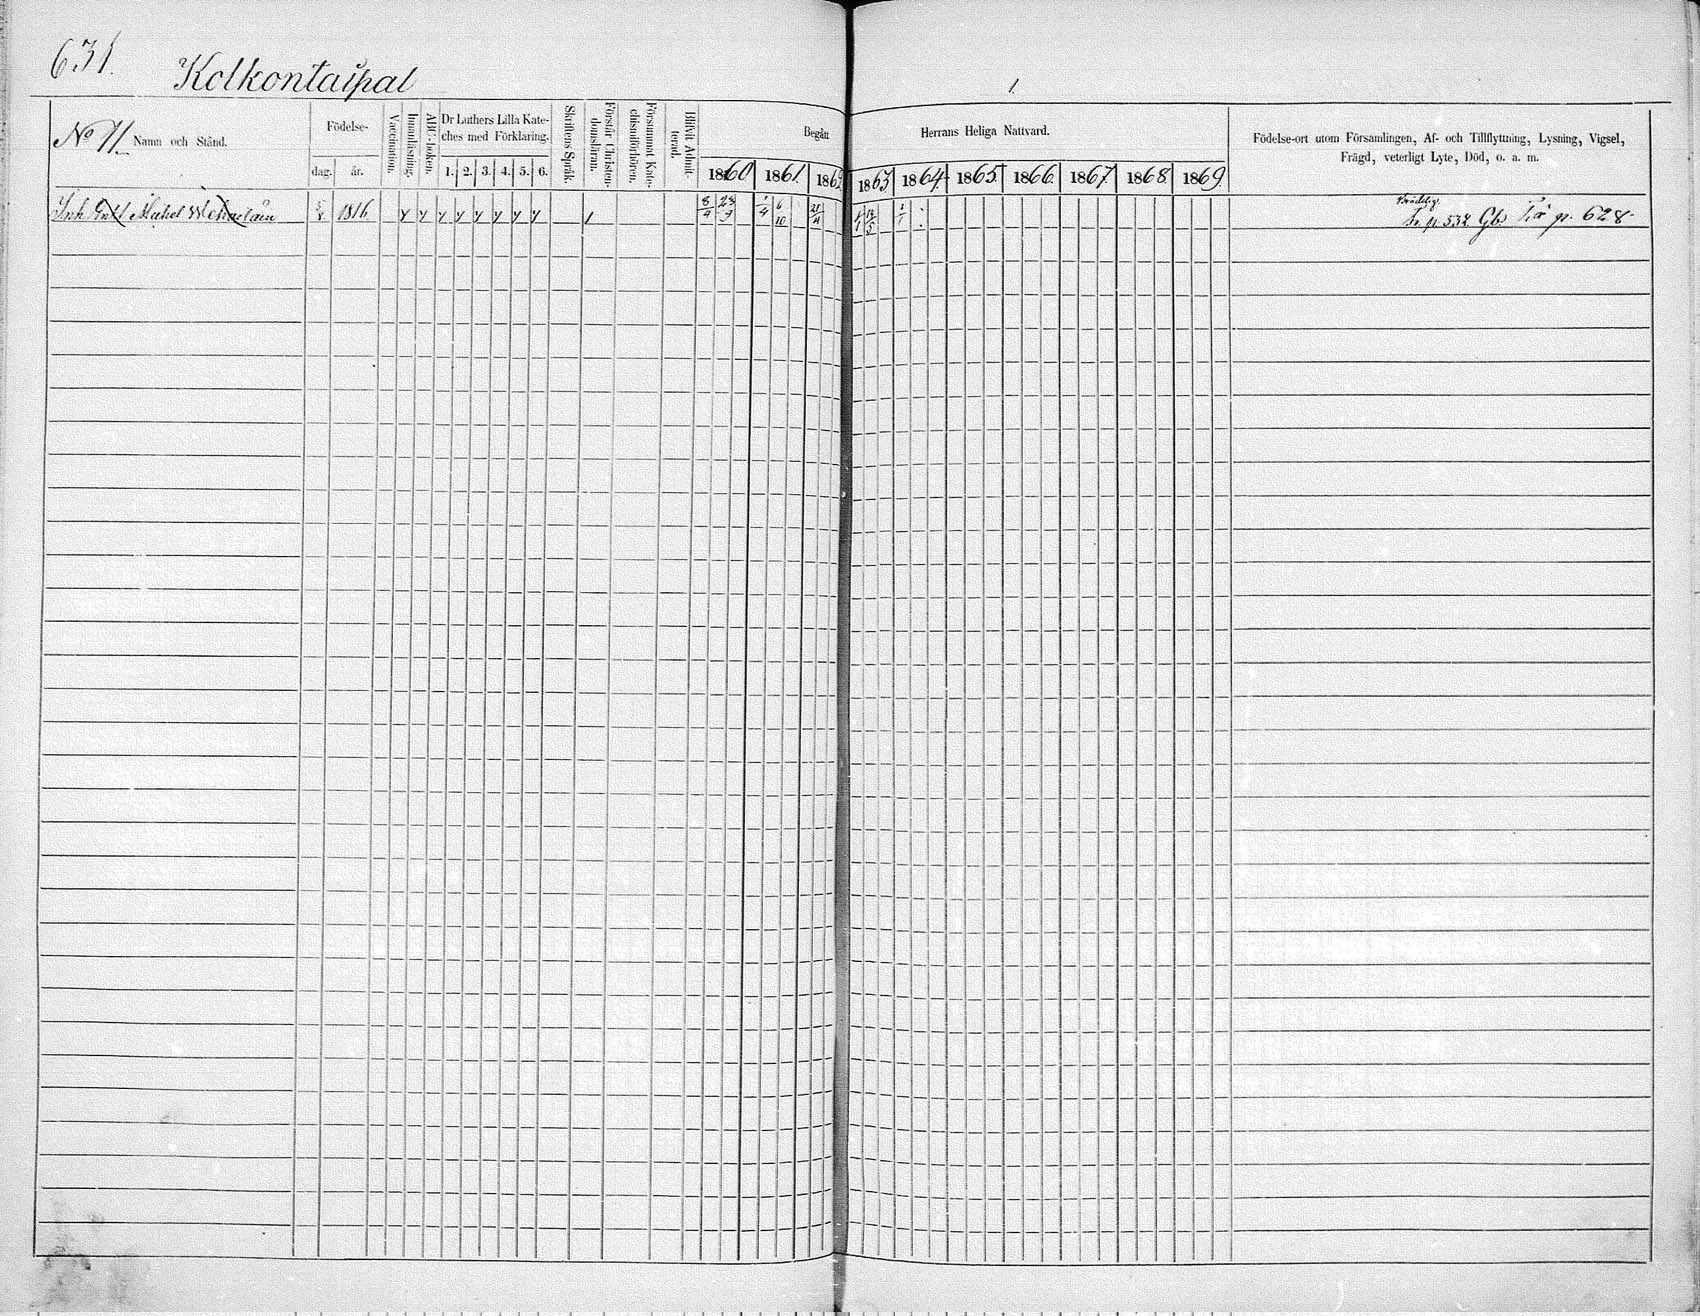 631.
Kolkontaipal
1.
No 11. Namn och Stånd.
Födelse-
dag. år.
Vaccination.
Innanläsning.
ABC-boken.
Dr Luthers Lilla Kate-
ches med Förklaring.
1. 2. 3. 4. 5. 6.
Skriftens Språk.
Förstår Christen-
domsläran.
Försummat Kate-
chismiförhören.
Blifvit Admit-
terad.
Begått Herrans Heliga Nattvard.
1860 1861. 1862 1863 1864. 1865 1866 1867 1868 1869
Födelse-ort utom Församlingen, Af- och Tillflyttning, Lysning, Vigsel,
Frägd, veterligt Lyte, Död, o. a. m.
Inh 1816 8/4 6/10 p. 532 Gb. p. 628.